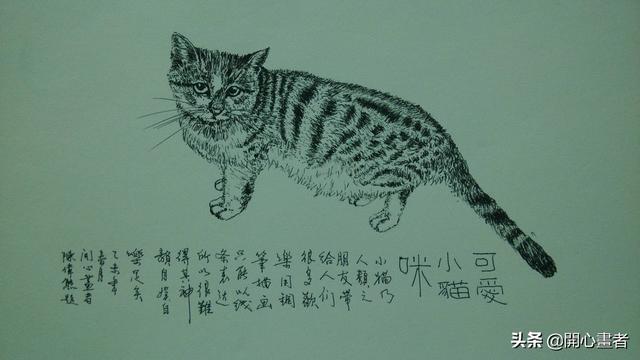 可愛
小貓
咪
小猫乃
人類之
朋友带
给人们
很多歡
樂用鋼
筆描画
只能以线
条表达
所以很難
得其神
韻自娱自
樂足矣
乙未年
春月
開心畫者
陳偉題
头条 @開心畫者